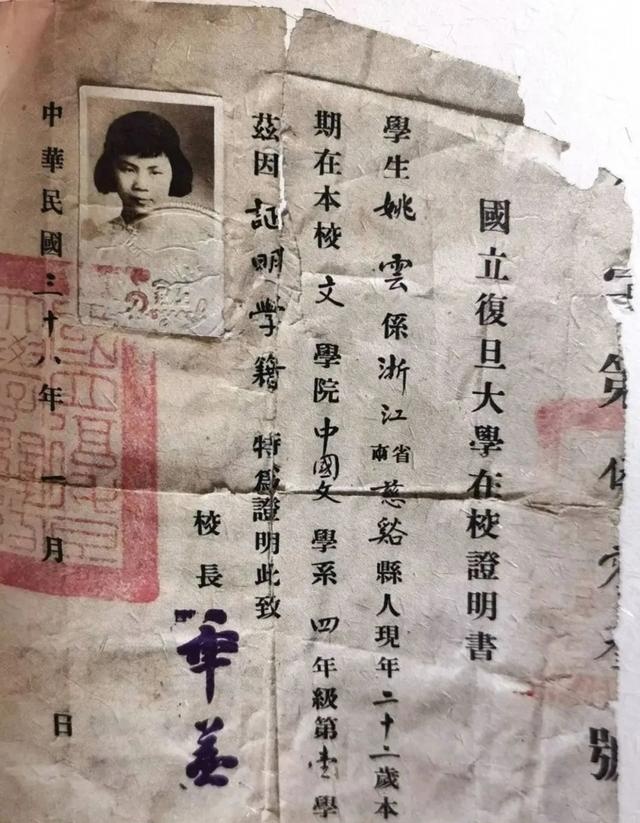 第 號
國立復旦大學在校證明書
學生姚雲係浙江省市慈谿縣人現年二十二歲本
期在本校文學院中國文學系四年級第壹學
茲因証明学籍特為證明此致
校長章益
中華民國三十八年一月 日